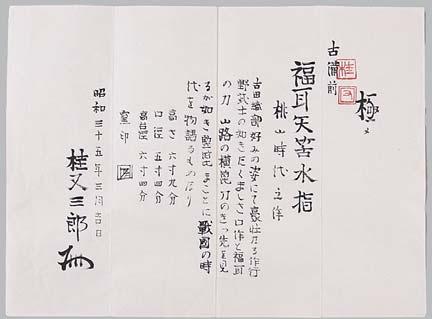 極メ
古備前
福耳矢筈水指
桃山時代之作
古田織部好みの姿にて豪壮なる作行
野武士の如きたくましさ口作と福耳
の刀 山路の横箆刀のきっ先を見
るが如き まことに戦国の時
代を物語るものなり
高さ 六寸九分
口径 五寸四分
高台径 六寸四分
窯印
昭和三十五年三月吉日
桂又三郎